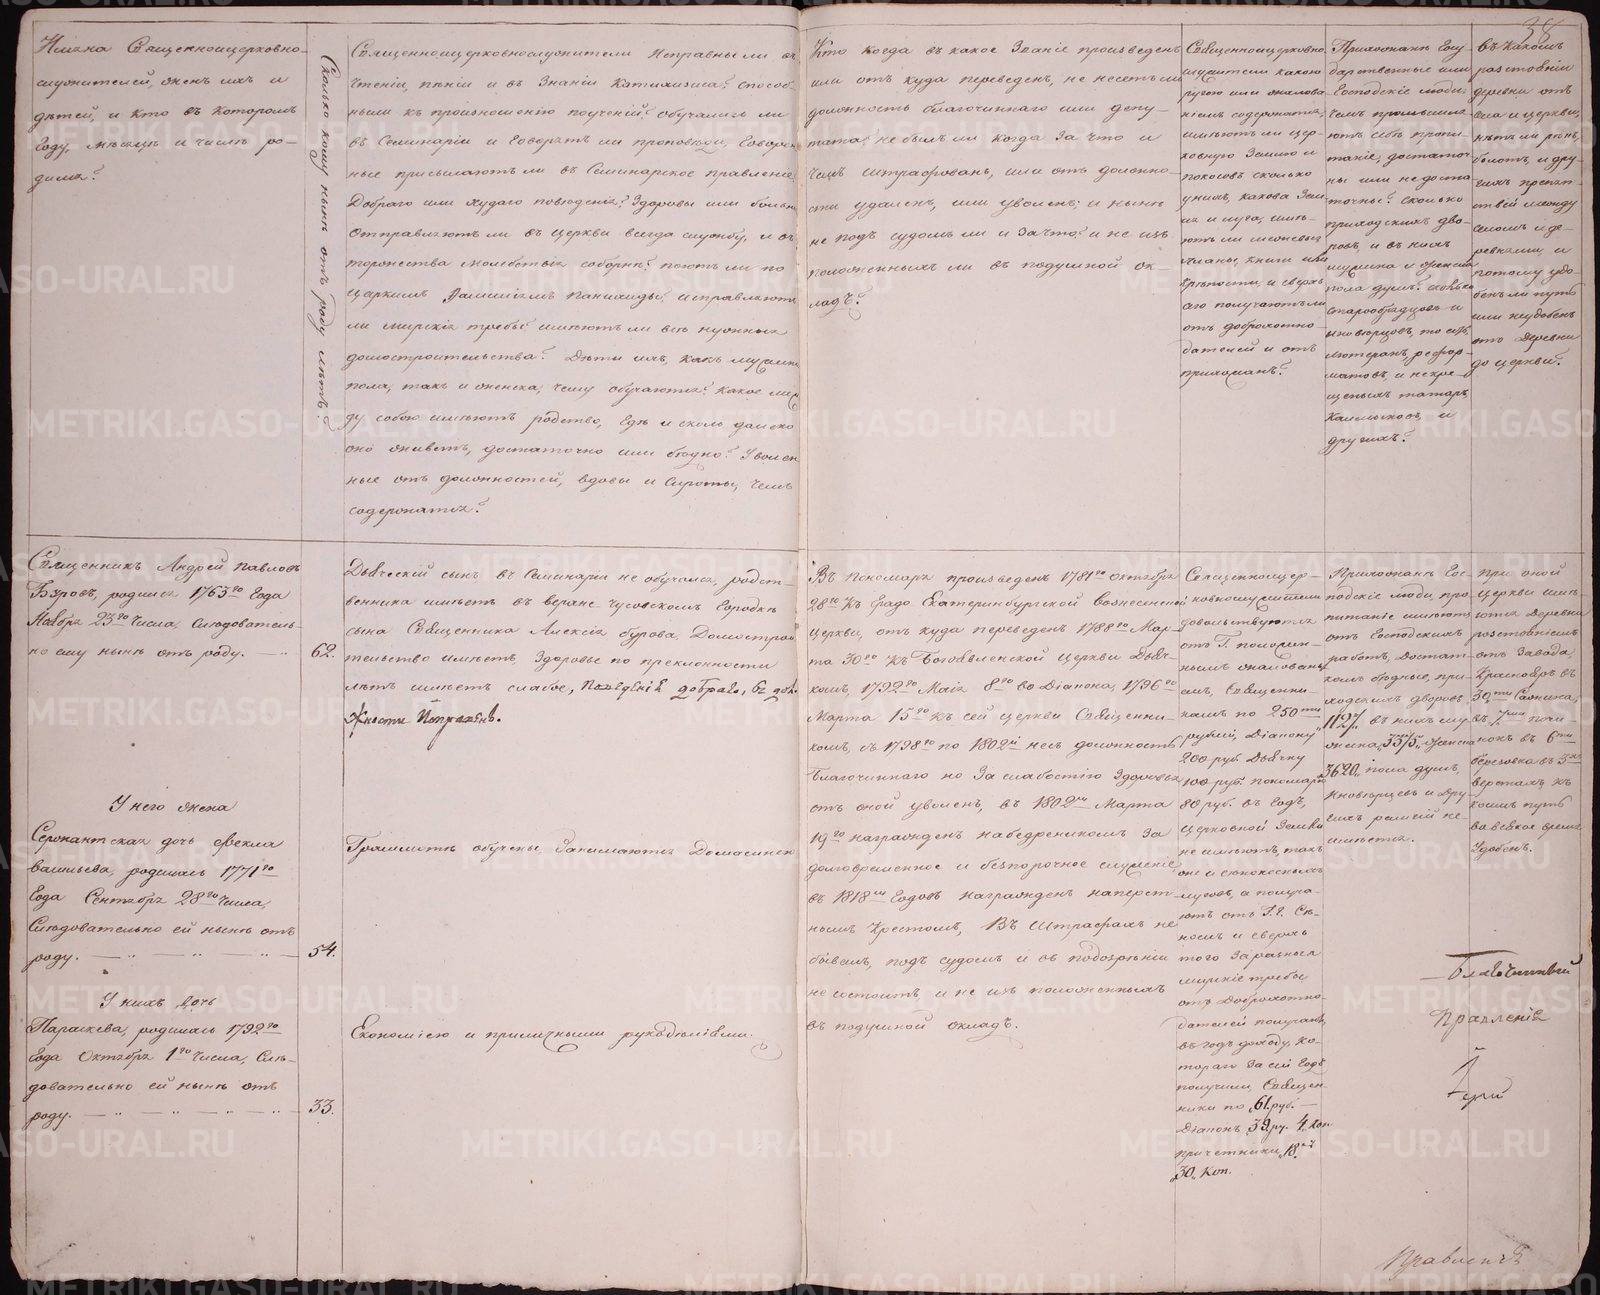 38
Имена Священноцерковно-
служителей, женъ ихъ и
дѣтей, и кто въ которомъ
Году, мѣсяцѣ и числѣ ро-
дился?
Сколько кому нынѣ отъ роду лѣтъ?
Священноцерковнослужители Исправны ли въ
Чтеніи, пѣніи и въ Знаніи Катихизиса? способ-
ны ли къ произношенію поученій? обучались ли
въ Семинаріи и Говорятъ ли проповѣди, Говорен-
ные присылаютъ ли въ Семинарское правленіе?
Добраго или худаго поведенія? Здоровы или больны?
Отправляютъ ли въ церкви всегда службу, и въ
торжества молебствія соборнѣ? поютъ ли по
Царскимъ Фамиліямъ Панихиды? исправляютъ
ли мирскія требы? имѣютъ ли всю нужная
домостроительства? Дѣти ихъ, какъ мужеска
пола, такъ и женска, чему обучаются? Какое меж-
ду собою имѣютъ родство, Гдѣ и сколь далеко
оно живетъ, достаточно или бѣдно? Уволен-
ные отъ должностей, вдовы и Сироты, чемъ
содержатся?
Кто когда въ какое Званіе произведенъ
или отъ куда переведенъ, не несетъ ли
должность благочиннаго или депу-
тата? не былъ ли когда За что и
Чемъ штрафованъ, или отъ должно-
сти удаленъ, или уволенъ; и нынѣ
не подъ судомъ ли и За что? и не изъ
положенныхъ ли въ подушной ок-
ладъ?
Священноцерковно
служители какою
ругою или жалова-
ньемъ содержатся;
имѣютъ ли цер-
ковную Землю и
покосовъ сколько
у нихъ, какова Зем-
ля и луга, имѣ-
ютъ ли межевые
планы, книги или
крѣпости, и сверхъ
сего получаютъ ли
отъ доброхотно-
дателей и отъ
прихожанъ?
Прихожане Госу-
дарственные или
Господскіе люди;
чемъ промышля-
ютъ себѣ пропи-
таніе, достаточ-
ны или не доста-
точны? сколько
приходскихъ дво-
ровъ, и въ нихъ
мужска и женска
пола душъ? сколько
старообрядцовъ и
иновѣрцовъ, то есть
лютеранъ, рефор-
матовъ, и некре-
щеныхъ татаръ,
Калмыковъ, и
другихъ?
въ какомъ
разстояніи
деревни отъ
села и церкви,
нѣтъ ли рѣкъ,
болотъ, и дру-
гихъ препят-
ствій между
селомъ и де-
ревнями, и
потому удо-
бенъ ли путь
или неудобенъ
отъ деревни
до церкви?
Священникъ Андрей Павловъ
Бѣровъ, родился 1763го Года
Ноября 23го Числа, Слѣдователь-
но ему нынѣ отъ роду. — 62.
У него жена
Сержантская дочь Ѳекла
Васильева, родилась 1771го
Года Сентября 28го Числа,
Слѣдовательно ей нынѣ отъ
роду. — 54.
У нихъ дочь
Параскева, родилась 1792го
Года Октября 1го Числа, Слѣ-
довательно ей нынѣ отъ
роду. — 33.
Дьяческій сынъ въ Семинаріи не обучался, родст-
венника имѣетъ въ верхне-Чусовскомъ Городкѣ
сына Священника Алексія бурова, Домострои-
тельство имѣетъ, Здоровье по преклонности
лѣтъ имѣетъ слабое, Поведенія добраго, въ дол-
жности Исправенъ.
Грамматѣ обучены, Занимаются Домашнею
Економіею и приличными рукодѣліями.
Въ Пономаря произведенъ 1781го Октября
28го Къ Градо Екатеринбургской Вознесенской
Церкви, отъ куда переведенъ 1788го Мар-
та 30го Къ Богоявленской Церкви Дьяч-
комъ, 1792го Маія 8го во Діакона, 1796го
Марта 15го Къ сей церкви Священни-
комъ, съ 1798го по 1802й несъ должность
Благочиннаго но За слабостію Здоровья
отъ оной уволенъ, въ 1802мъ Марта
19го награжденъ набедренникомъ За
долговременное и безпорочное служеніе,
въ 1818мъ Годовъ награжденъ наперст-
нымъ Крестомъ, Въ Штрафахъ не
бывалъ, подъ судомъ и въ подозрѣніи
не состоитъ, и не изъ положенныхъ
въ подушной окладъ.
Священноцер-
ковнослужители
довольствуются
отъ Г. помѣщи-
чьимъ жалованье-
мъ, Священни-
камъ по 250ти
рублей, Діакону
200 руб. Дьячку
100 руб. пономарю
80 руб. въ Годъ,
Церковной Земли
не имѣютъ, такъ
же и сѣнокосныхъ
луговъ, а получа-
ютъ отъ Г. Сѣ-
номъ и сверхъ
того За разныя
мирскіе требы
отъ Доброхотно-
дателей получаютъ
въ годъ доходу, ко-
тораго За сей Годъ
получили, Священ-
ники по „61. руб. —
Діаконъ „39. ру. 4. коп
причетники „18.
„30„ Коп.
Прихожане Гос-
подскіе люди, про-
питаніе имѣютъ
отъ Господскихъ
работъ, Достат-
комъ бѣдные, при-
ходскихъ дворовъ
1127. въ нихъ му-
жеска „3375„ женска
3620„ пола душъ,
Иновѣрцевъ и Дру-
гихъ религій не
имѣется.
при оной
церкви имѣ-
ются Деревни
разстояніемъ
отъ Завода,
Краснояръ въ
30ти Сажняхъ,
въ 7ми почи-
нокъ въ 6ти
березовка въ 5ти
верстахъ къ
коимъ путь
во всякое время
Удобенъ.
Благочинный
Правленія
Правленія